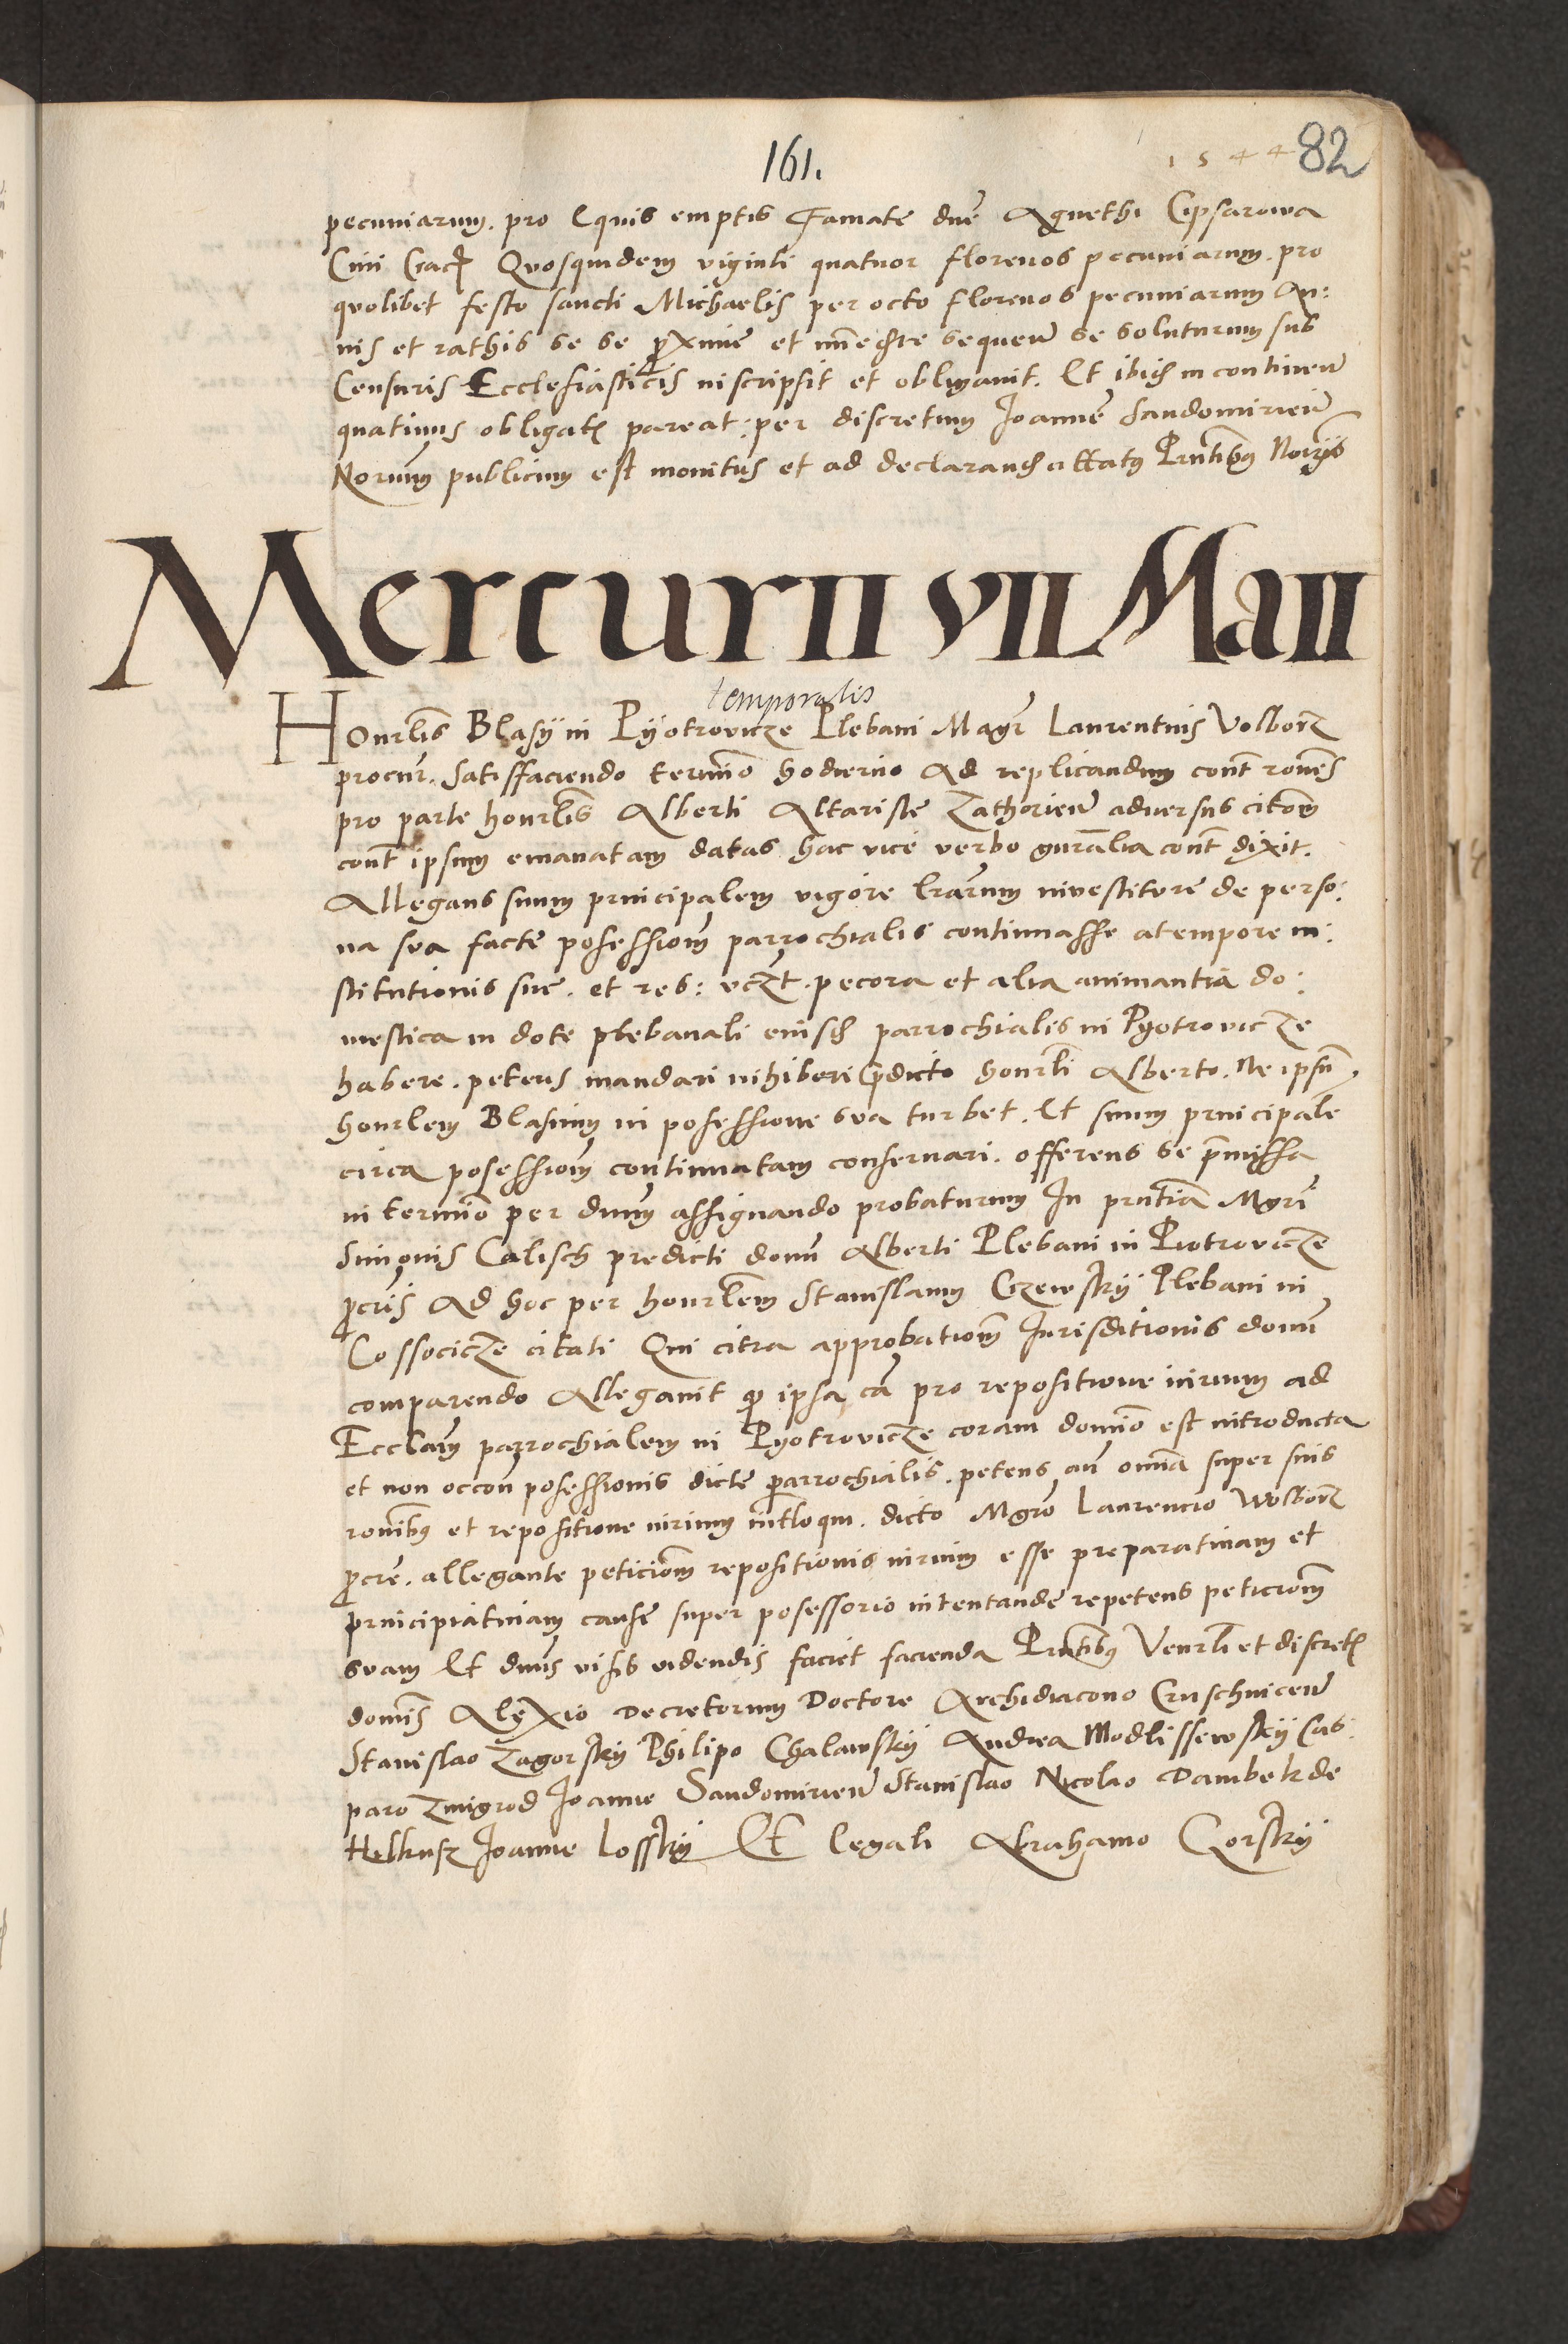 161.
1544 82
pecuniarum. pro Equis emptis Famate dnē Agnethi Cipsarowa
Civi Crac̄ Quosquidem viginti quatuor florenos pecuniarum. pro
quolibet festo sancti Michaelis per octo florenos pecuniarum An:
nis et rathis se se proxime et immediate sequen̄ se soluturum sub
Censuris Ecclesiasticis inscripsit et obligavit. Et ibid in continen̄
quatinus obligatȩ pareat: per discretum Joannē Sandomirien̄
Norium publicum est monitus et ad declarand cittatꝫ Pn̄tibꝫ Noriis
Mercurii VII Maii
temporalis
Honrlis Blasii in Pyotrovicze Plebani Magr̄ Laurentius Volborz
procur̄. Satisfaciendo termīo hodierno Ad replicandum cont̄ rones
pro parte honrlis Alberti Altariste Zathorien̄ adversus citōm
cont̄ ipsum emanatam datas hac vice verbo gnralia cont̄ dixit.
Allegans suum principalem vigore lrārum investiture de perso:
na sua facte posessiōm parrochialis continuasse a tempore in:
stitutionis sue. et res: vczt. pecora et alia animantia do:
mestica in dote plebanali eiusd parrochialis in Pyotrovicze
habere. petens mandari inhiberi p̄dicto honrli Alberto. Ne ipsū
honrlem Blasium in posessione sua turbet. Et suum principalē
circa posessiōm continuatam conservari. offerens se p̄missa
in termīo per dnum assignando probaturum In pn̄tia Mgri
Simonis Calisch predicti domī Alberti Plebani in Piotrovicze
p̄cris Ad hoc per honrlem Stanislaum Czewsky Plebani in
Cossocicze citati Qui citra approbatiōm Jurisditionis domī
comparendo Allegavit qꝫ ipsa cā pro repositione iurium ad
Ecclām parrochialem in Pyotrovicze coram domīo est introducta
et non occōn posessionis dicte parrochialis. petens an̄ omīa super suis
ronibꝫ et repositione iurium intloqui. dicto Mgrō Laurencio Wolborz
p̄cre. allegante peticiōm repositionis iurium esse preparativam et
principiativam cause super posessorio intentande repetens peticiōm
suam Et dnus visis videndis faciet facienda Pn̄tibꝫ Venrli et discretȩ
domīs Alexio Decretorum Doctore Archidiacono Cruschvicen̄
Stanislao Zagorsky Philipo Chalawsky Andrea Modlissewsky Cas:
paro Zmigrod Joanne Sandomirien̄ Stanislao Nicolao Dambek de
Helkusz Joanne Lossky Et legali Abrahamo Gorsky